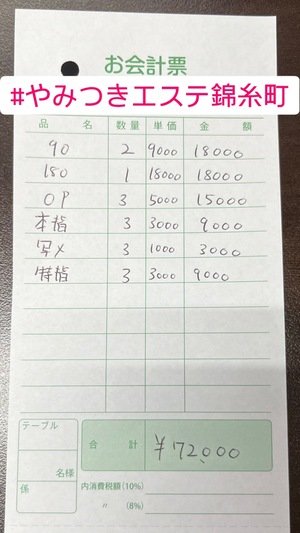 お会計票
#やみつきエステ錦糸町
品名 数量 単価 金額
90 2 9000 18000
180 1 18000 18000
OP 3 5000 15000
本指 3 3000 9000
写メ 3 1000 3000
特指 3 3000 9000
テーブル
名様
係
合計 ¥72,000
内消費税額(10%)
〃 (8%)